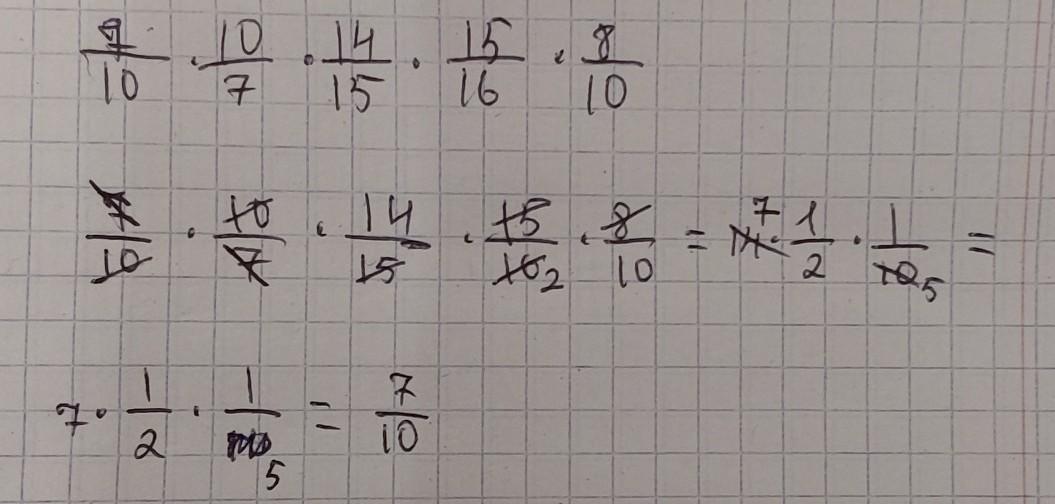 7/10 · 10/7 · 14/15 · 15/16 · 8/10
7/10 · 10/7 · 14/15 · 15/16 2 · 8/10 = 14 7 · 1/2 · 1/10 5 =
7 · 1/2 · 1/5 = 7/10